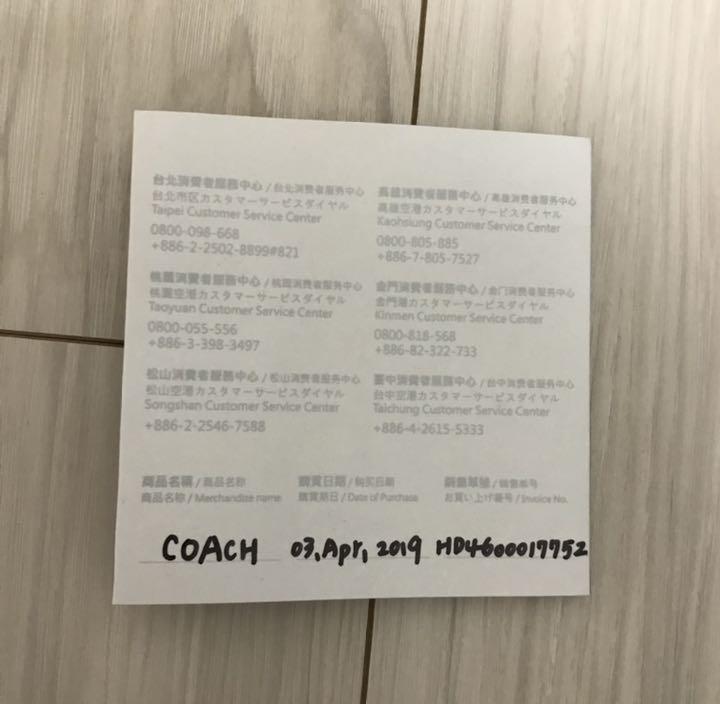 台北消費者服務中心 / 台北消费者服务中心
台北市区カスタマーサービスダイヤル
Taipei Customer Service Center
0800-098-668
+886-2-2502-8899#821
高雄消費者服務中心 / 高雄消费者服务中心
高雄空港カスタマーサービスダイヤル
Kaohsiung Customer Service Center
0800-805-885
+886-7-805-7527
桃園消費者服務中心 / 桃园消费者服务中心
桃園空港カスタマーサービスダイヤル
Taoyuan Customer Service Center
0800-055-556
+886-3-398-3497
金門消費者服務中心 / 金门消费者服务中心
金門港カスタマーサービスダイヤル
Kinmen Customer Service Center
0800-818-568
+886-82-322-733
松山消費者服務中心 / 松山消费者服务中心
松山空港カスタマーサービスダイヤル
Songshan Customer Service Center
+886-2-2546-7588
臺中消費者服務中心 / 台中消费者服务中心
台中空港カスタマーサービスダイヤル
Taichung Customer Service Center
+886-4-2615-5333
商品名稱 / 商品名称
商品名称 / Merchandise name
購買日期 / 购买日期
購買期日 / Date of Purchase
銷售單號 / 销售单号
お買い上げ番号 / Invoice No.
COACH 03, Apr, 2019 HD4600017752